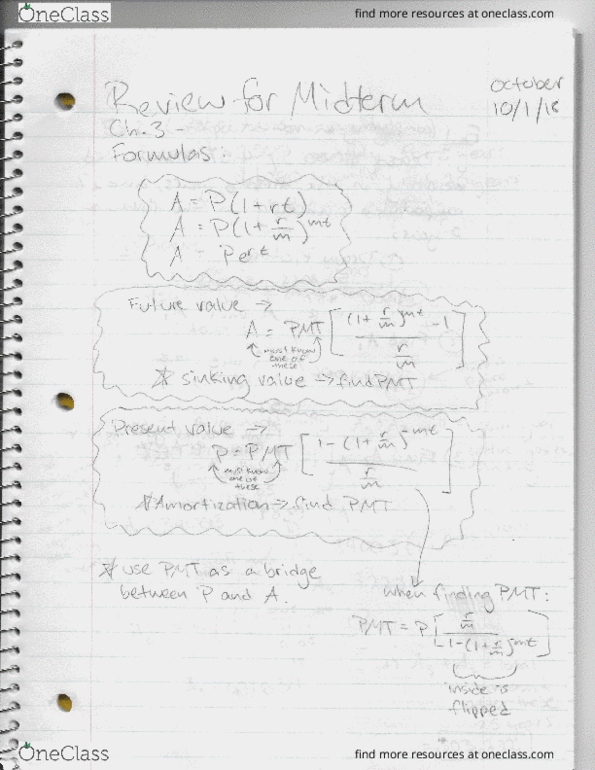 OneClass
find more resources at oneclass.com
October
10/1/18
Review for Midterm
Ch. 3 -
Formulas:
A = P(1+rt)
A = P(1+ r/m)^mt
A = Pe^rt
Future value →
A = PMT [ (1+ r/m)^mt -1 / r/m ]
must know
one of
these
* sinking value → find PMT
Present value →
P = PMT [ 1-(1+ r/m)^-mt / r/m ]
must know
one of
these
* Amortization → find PMT
* use PMT as a bridge
between P and A.
when finding PMT:
PMT = P [ r/m / 1-(1+ r/m)^-mt ]
inside is
flipped
OneClass
find more resources at oneclass.com